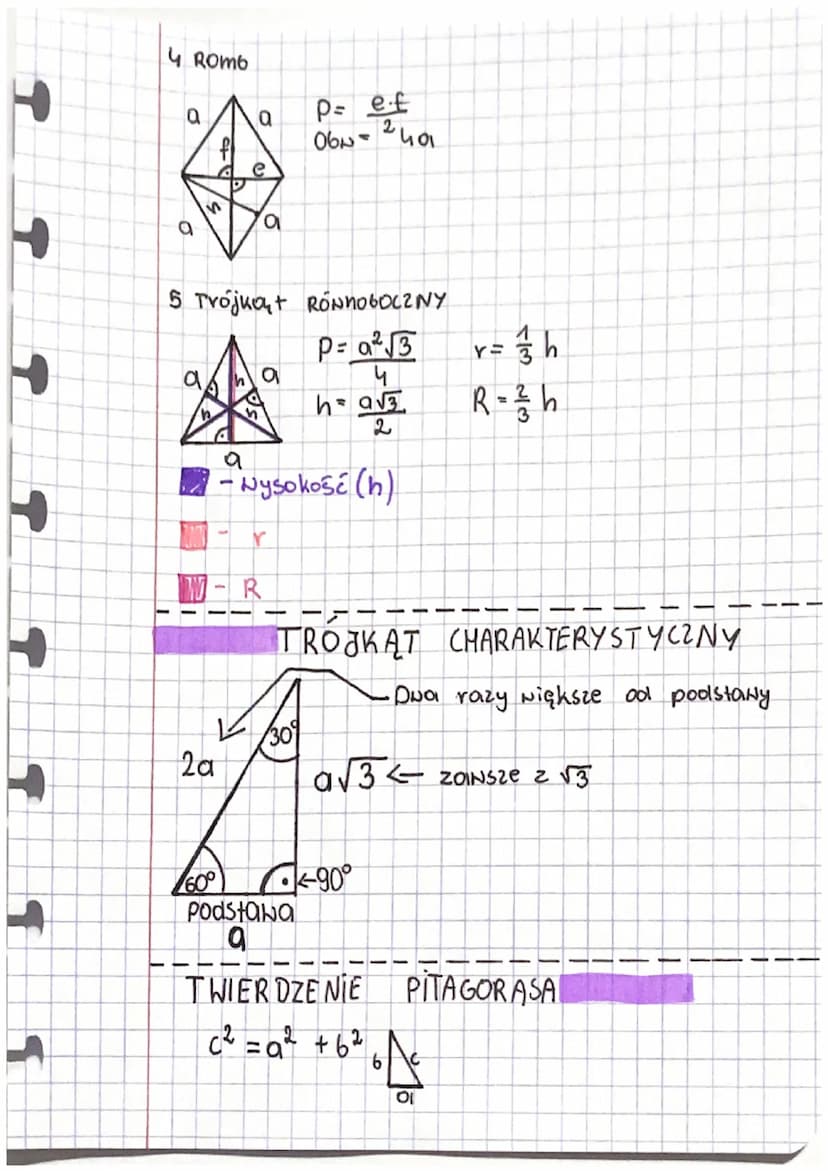 4 Romb
a a
f
e
h
a a
P= e·f/2
Obw= 4a
5 Trójkąt RÓWNOBOCZNY
a h a
h h
a
P= a²√3/4
h= a√3/2
r= 1/3 h
R= 2/3 h
- Wysokość (h)
- r
- R
TRÓJKĄT CHARAKTERYSTYCZNY
Dwa razy większe od podstawy
30°
2a
a√3 ← zawsze z √3
60° ←90°
Podstawa
a
TWIERDZENIE PITAGORASA
c² = a² + b²
b c
a